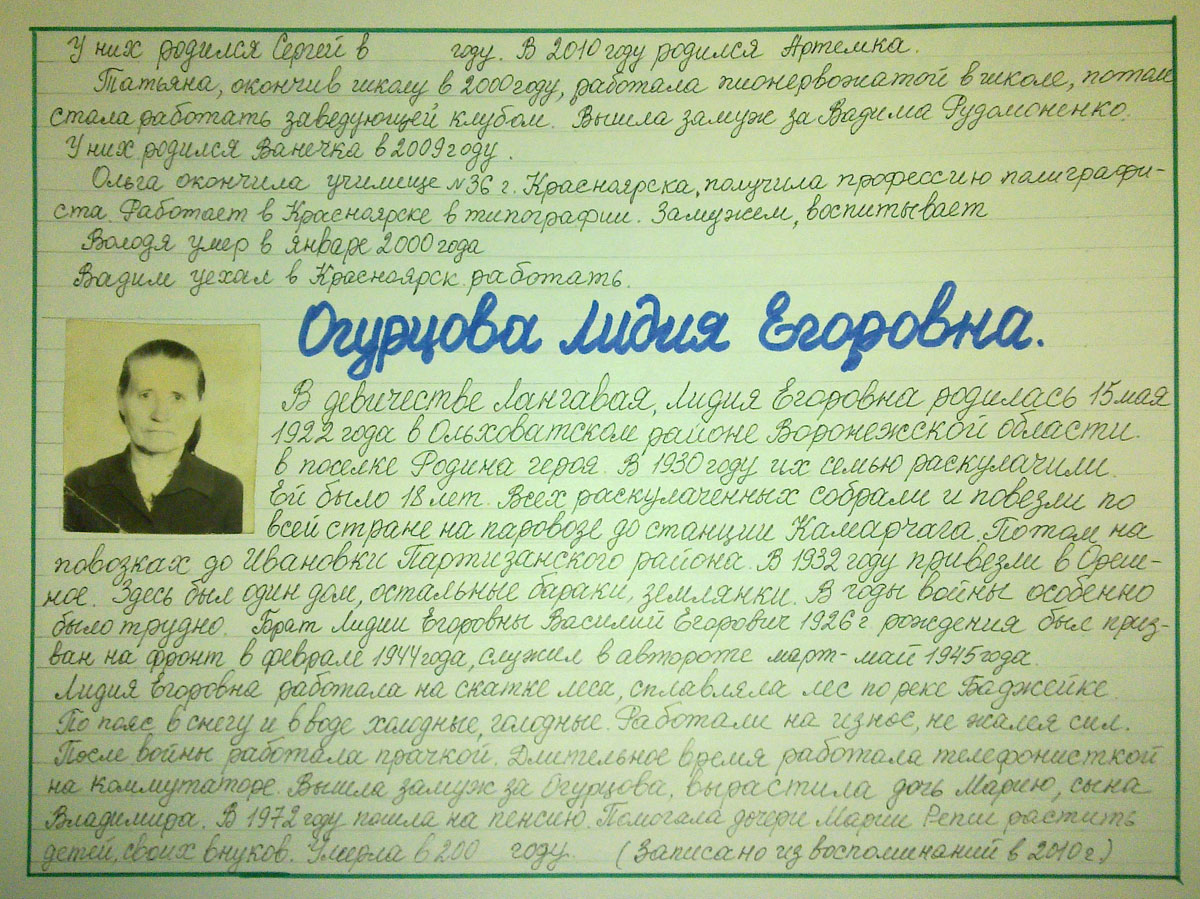 У них родился Сергей в году. В 2010 году родился Артемка.
Татьяна, окончив школу в 2000 году, работала пионервожатой в школе, потом
стала работать заведующей клубом. Вышла замуж за Вадима Рудомоненко.
У них родился Ванечка в 2009 году.
Ольга окончила училище №36 г. Красноярска, получила профессию полиграфи-
ста. Работает в Красноярске в типографии. Замужем, воспитывает
Володя умер в январе 2000 года
Вадим уехал в Красноярск работать.
Огурцова Лидия Егоровна.
В девичестве Лангавая, Лидия Егоровна родилась 15 мая
1922 года в Ольховатском районе Воронежской области
в поселке Родина героя. В 1930 году их семью раскулачили.
Ей было 18 лет. Всех раскулаченных собрали и повезли по
всей стране на паровозе до станции Камарчага. Потом на
повозках до Ивановки Партизанского района. В 1932 году привезли в Ореш-
ное. Здесь был один дом, остальные бараки, землянки. В годы войны особенно
было трудно. Брат Лидии Егоровны Василий Егорович 1926 г. рождения был приз-
ван на фронт в феврале 1944 года, служил в автороте март-май 1945 года.
Лидия Егоровна работала на скатке леса, сплавляла лес по реке Баджейке.
По пояс в снегу и в воде холодные, голодные. Работали на износ, не жалея сил.
После войны работала прачкой. Длительное время работала телефонисткой
на коммутаторе. Вышла замуж за Огурцова, вырастила дочь Марию, сына
Владимира. В 1972 году пошла на пенсию. Помогала дочери Марии Репии растить
детей, своих внуков. Умерла в 200 году. (Записано из воспоминаний в 2010 г.)